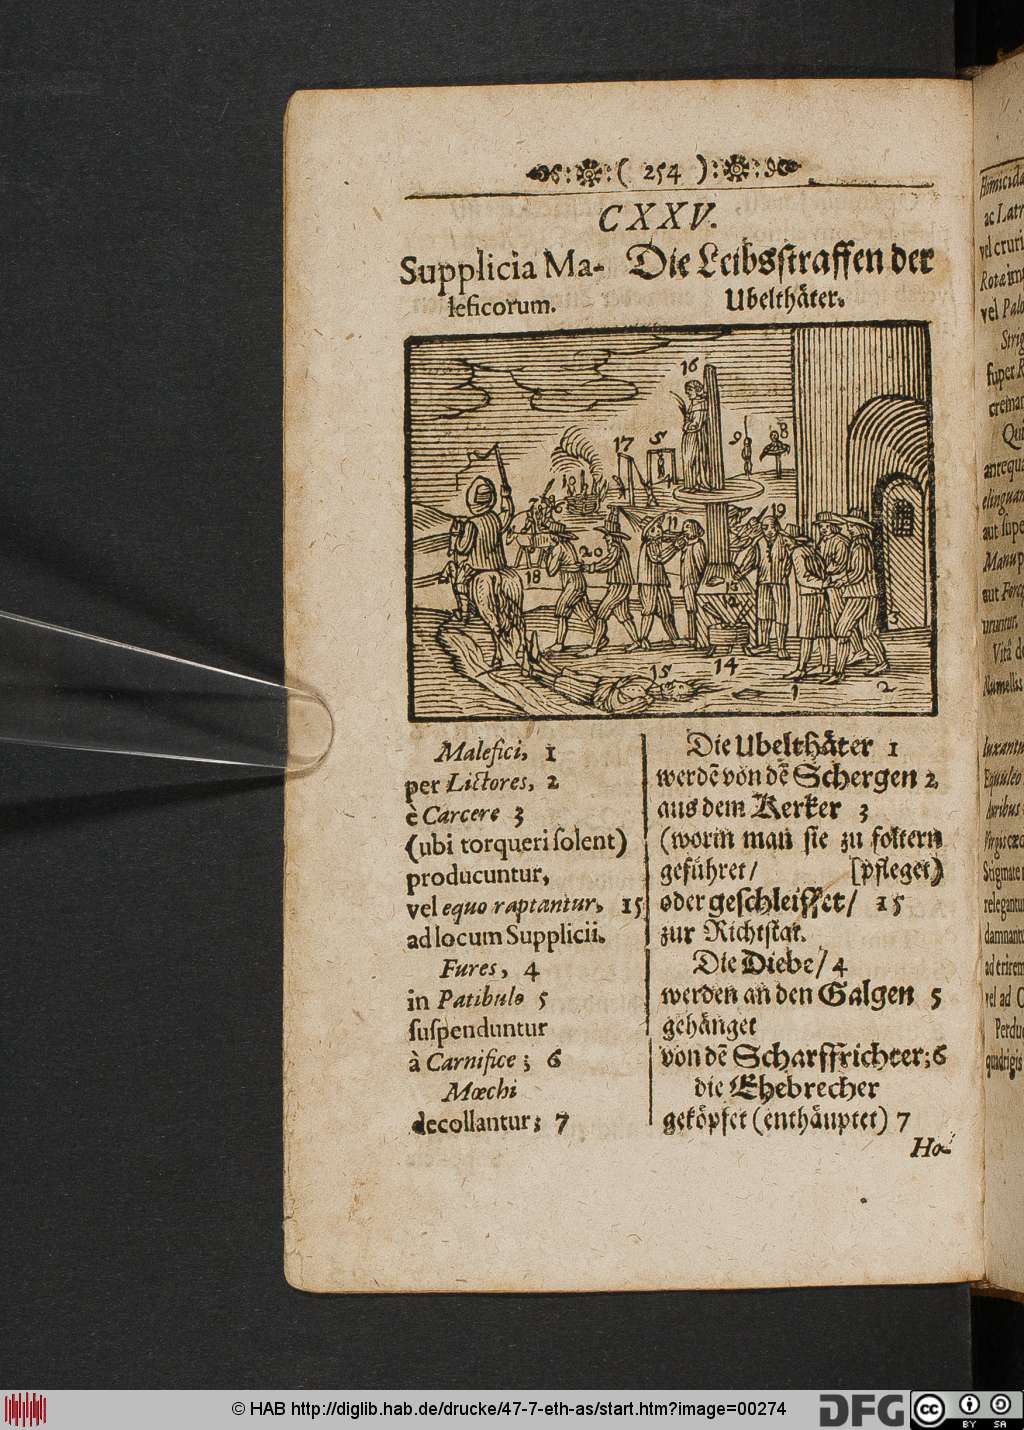 ( 254 )
CXXV.
Supplicia Ma-
leficorum.
Die Leibsſtraffen der
Ubelthäter.
16
17
5
9
8
10
4
7
6
11
19
20
18
13
12
3
15
14
1
2
Malefici, 1
per Lictores, 2
è Carcere 3
(ubi torqueri ſolent)
producuntur,
vel equo raptantur, 15
ad locum Supplicii.
Fures, 4
in Patibulo 5
ſuſpenduntur
à Carnifice ; 6
Mœchi
decollantur; 7
Die Ubelthäter 1
werdẽ von dẽ Schergen 2
aus dem Kerker 3
(worin man ſie zu foltern
geführet/ [pfleget)
oder geſchleiffet/ 15
zur Richtſtat.
Die Diebe/ 4
werden an den Galgen 5
gehänget
von dẽ Scharffrichter; 6
die Ehebrecher
geköpfet (enthäuptet) 7
Ho-
Homicidæ
ac Latr
vel cruri
Rotæ im
vel Palo
Strig
ſuper R
cremar
Qui
antequa
elinguan
aut ſupe
Manu p
aut Forcip
uruntur.
Vitâ d
Numellis
luxantur
Equuleo
Virgis cæd
Stigmate
relegantur
damnantur
ad trirem
vel ad
Perdu
quadrigis
© HAB http://diglib.hab.de/drucke/47-7-eth-as/start.htm?image=00274
DFG
cc
BY SA